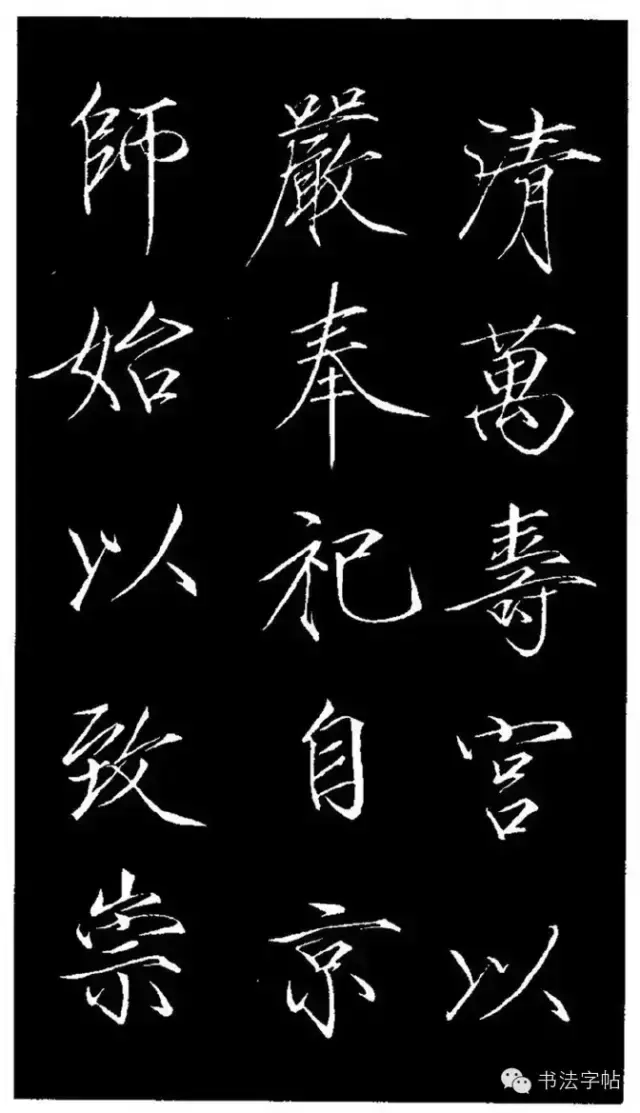 清萬壽宮以
嚴奉祀自京
師始以致崇
书法字帖